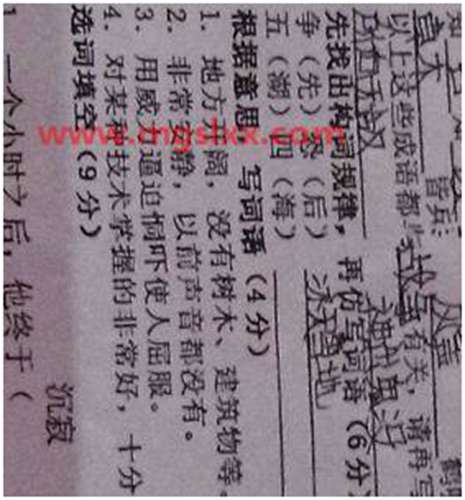 皆兵
以上这些成语都与战争有关，请再写
先找出构词规律，再仿写词语（6分
争（先）恐（后）
冰天雪地
五（湖）四（海）
根据意思，写词语（4分）
1．地方开阔，没有树木、建筑物等。
2．非常安静，以前声音都没有。
3．用威力逼迫恫吓使人屈服。
4．对某种技术掌握的非常好，十分
选词填空（9分）
沉寂
1 一个小时之后，他终于（
www.mgslxx.com